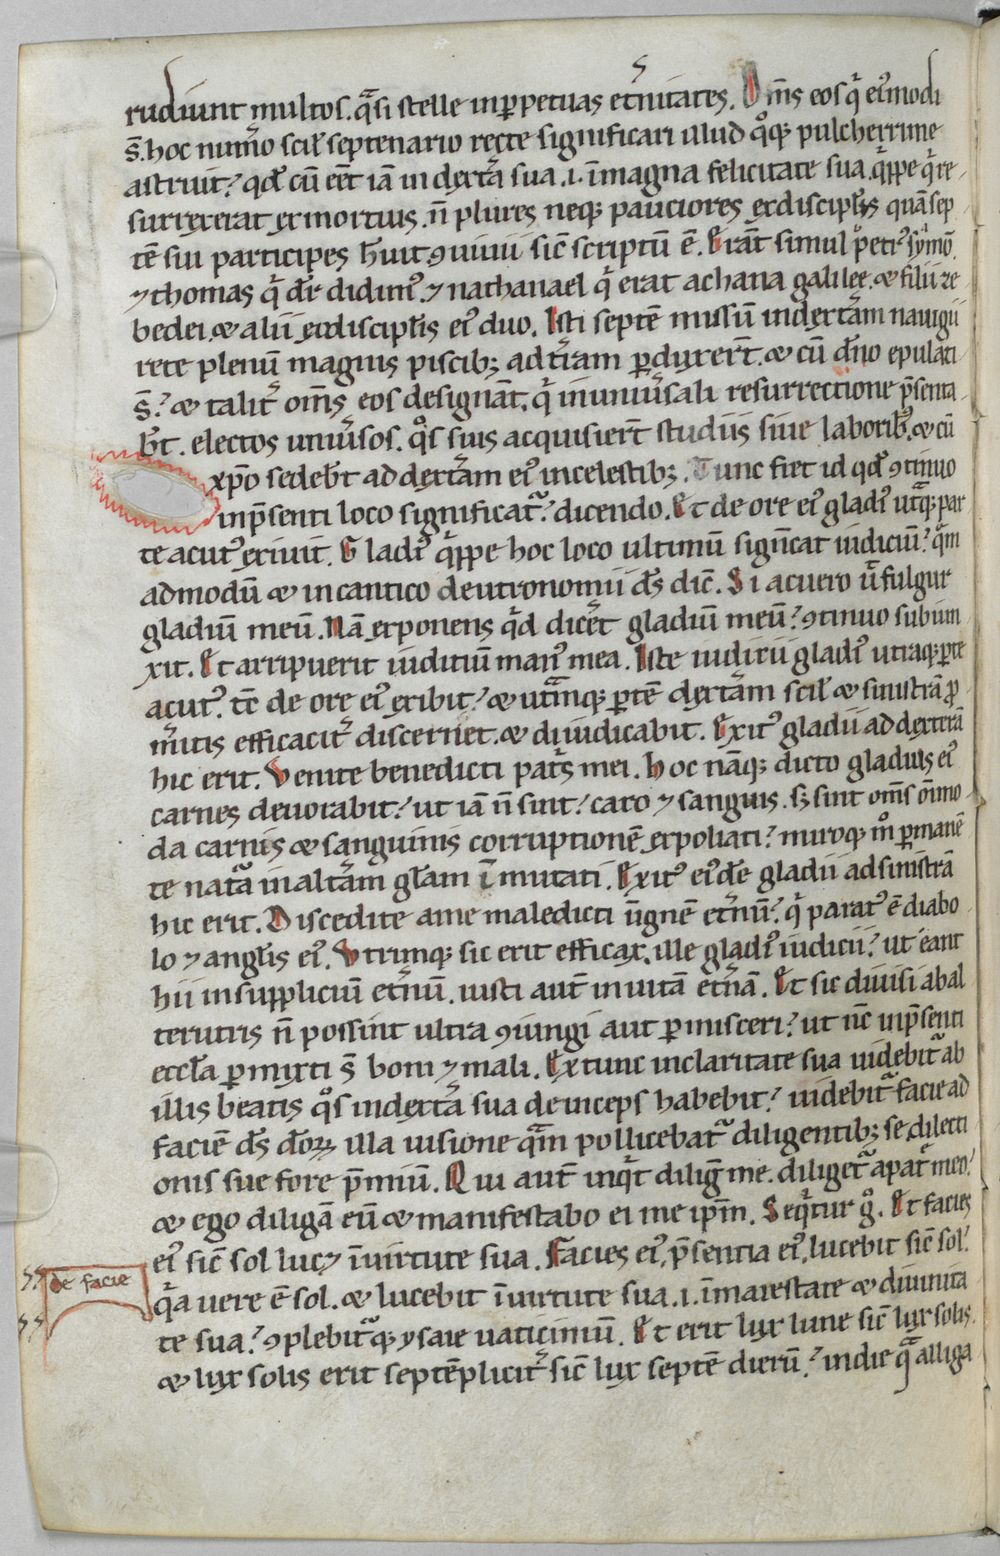 rudiunt multos. q̄si stelle in ꝑpetuas et̄nitates. Om̄s eos q̇ eiꝰmodi
s̄. hoc num̄o scil̄ septenario recte significari illud qͦꝗ pulcherrime
astruit? qd̄ cū eēt iā in dext̄a sua .i. ī magna felicitate sua. q̇ppe q̇ re
surrexerat ex mortuis. n̄ plures neqꝫ pauciores ex discipl̄is quā sep
tē sui participes h̄uit ꝯuiuii sic̄ scriptū ē. Erāt simul petrꝰ. symō.
⁊ thomas q̇ dr̄ didimꝰ. ⁊ nathanael q̇ erat a chana galilee. & filii ze
bedei. & alii ex discipl̄is eiꝰ duo. Isti septē missū in dext̄am nauigii
rete plenū magnis piscibꝫ ad t̄ram ꝑduxer̄t. & cū dn̄o epulati
s̄? & talit̄ om̄s eos designāt. q̇ in uniūsali resurrectione p̄senta
bt̄. electos uniūsos. qͦs suis acquisier̄t studiis siue laboribꝰ. & cū
xp̄o sedebt̄ ad dext̄am eiꝰ in celestibꝫ. Tunc fiet id qd̄ ꝯtinuo
in p̄senti loco significat̄? dicendo. Et de ore eiꝰ gladiꝰ ut̄qꝫ par
te acutꝰ exiuit. Gladiꝰ q̇ppe hoc loco ultimū signīcat iudiciū? q̄m
admodū & in cantico deutronomii ds̄ dic̄. Si acuero ut̄ fulgur
gladiū meū. Nā exponens q̇d dicēt gladiū meū? ꝯtinuo subiun
xit. Et arripuerit iuditiū manꝰ mea. Iste iuditii gladiꝰ utraqꝫ ꝑte
acutꝰ. tc̄ de ore eiꝰ exibit? & ut̄mqꝫ ꝑtē dext̄am scil̄ & sinistrā ꝓ
m̄itis efficacit̄ discernet. & diiudicabit. Exitꝰ gladii ad dexterā
hic erit. Venite benedicti patr̄s mei. Hoc nāqꝫ dicto gladiꝰ eiꝰ
carnes deuorabit? ut iā n̄ sint? caro ⁊ sanguis. sꝫ sint om̄s om̄imo
da carnis & sanguinis corruptionē expoliati? miroqꝫ mͦ ꝑmanē
te nat̄a in alt̄am gl̄am īmutati. Exitꝰ eiꝰde gladii ad sinistrā
hic erit. Discedite a me maledicti in̄ ignē et̄nū? q̇ paratꝰ ē diabo
lo ⁊ angl̄is eiꝰ. Vtrimqꝫ sic erit efficax. ille gladiꝰ iudicii? ut eant
hii in suppliciū et̄nū. iusti aut̄ in uitā et̄nā. Et sic diuisi ab al
terutris n̄ possint ultra ꝯiungi aut ꝑmisceri? ut nc̄ in p̄senti
eccl̄a ꝑmixti s̄ boni ⁊ mali. Ex tunc in claritate sua uidebit̄ ab
illis beatis qͦs in dext̄a sua deinceps habebit? uidebit̄ facie ad
faciē ds̄ dōꝝ. illa uisione q̄m pollicebat̄ diligentibꝫ se. dilecti
onis sue fore p̄miū. Qui aut̄ inq̇t diliḡ me. diliget̄ a patre meo?
& ego diligā eū & manifestabo ei me ipm̄. Seq̇tur gͦ. Et facies
eiꝰ sic̄ sol lucꝫ ī uirtute sua. Facies eiꝰ. p̄sentia eiꝰ. lucebit sic̄ sol?
de facie
q̇a uere ē sol. & lucebit ī uirtute sua .i. ī maiestate & diuinita
te sua? ꝯplebit̄qꝫ ysaie uaticiniū. Et erit lux lune sic̄ lux solis.
& lux solis erit septēplicit̄ sic̄ lux septē dierū? in die q̄ alliga